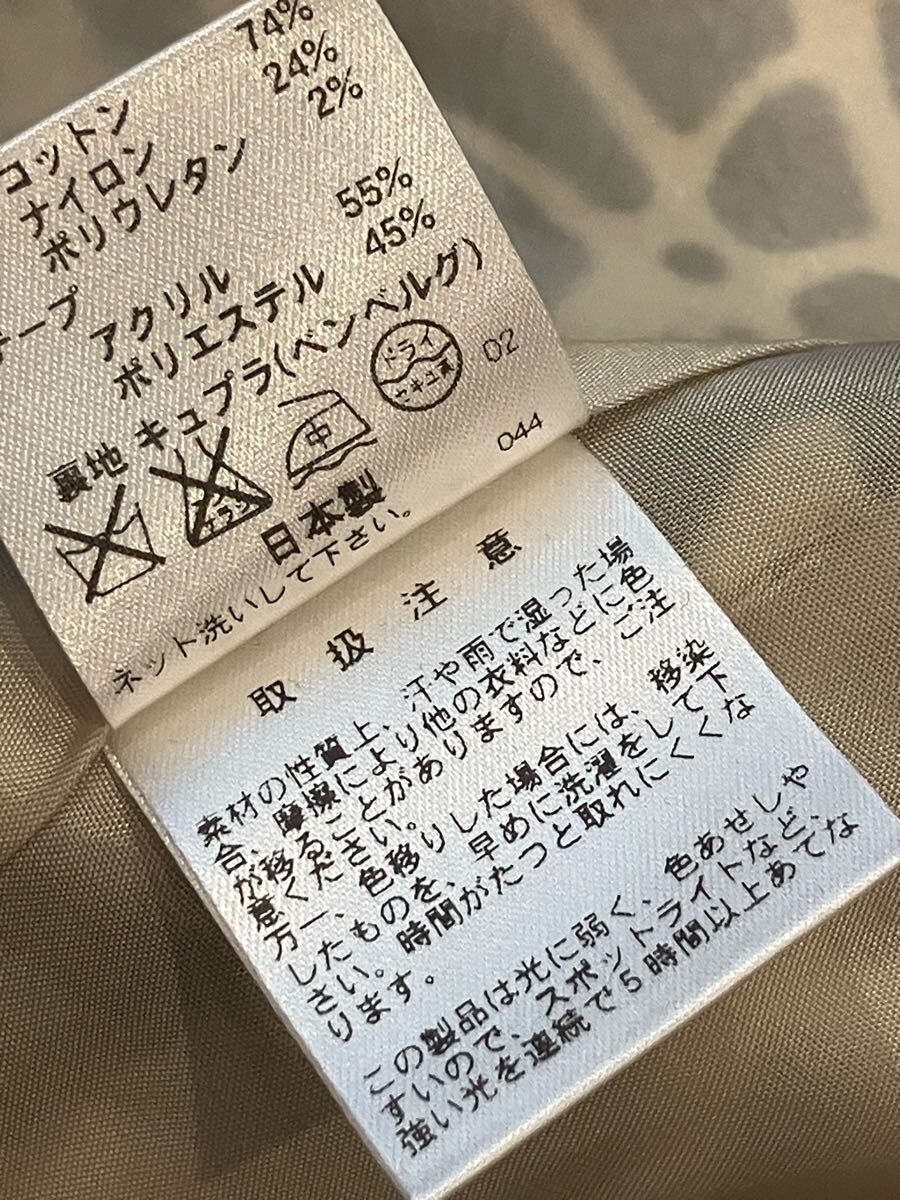 コットン 74%
ナイロン 24%
ポリウレタン 2%
テープ
アクリル 55%
ポリエステル 45%
裏地 キュプラ(ベンベルグ)
エンソサラシ 中 ドライ セキユ系 02
日本製 044
ネット洗いして下さい。
取 扱 注 意
素材の性質上、汗や雨で湿った場
合、摩擦により他の衣料などに色
が移ることがありますので、ご注
意ください。
万一、色移りした場合には、移染
したものを、早めに洗濯をして下
さい。時間がたつと取れにくくな
ります。
この製品は光に弱く、色あせしや
すいので、スポットライトなど、
強い光を連続で5時間以上あてな